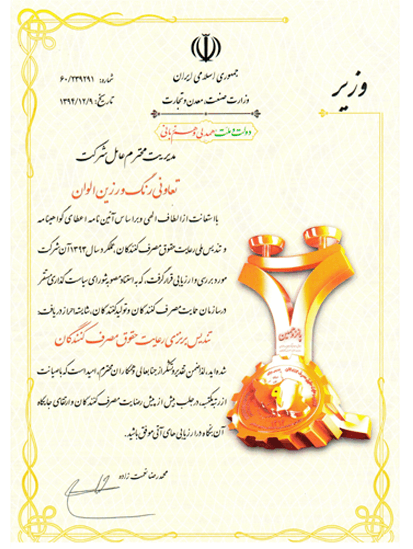 جمهوری اسلامی ایران
وزارت صنعت، معدن و تجارت
وزیر
شماره: ۶۰/۲۳۹۲۹۱
تاریخ: ۱۳۹۴/۱۲/۹
دولت و ملت، همدلی و همزبانی
مدیریت محترم عامل شرکت
تعاونی رنگ و رزین الوان
با استعانت از الطاف الهی و بر اساس آئین نامه اعطای گواهینامه
و تندیس ملی رعایت حقوق مصرف کنندگان، عملکرد سال ۱۳۹۳ آن شرکت
مورد بررسی و ارزیابی قرار گرفت، که به استناد مصوبه شورای سیاست گذاری مستقر
در سازمان حمایت مصرف کنندگان و تولیدکنندگان، شایسته احراز دریافت:
تندیس برنزی رعایت حقوق مصرف کنندگان
شده اید، لذا ضمن تقدیر و تشکر از جنابعالی و همکاران محترم، امید است که با صیانت
از رتبه مکتسبه، در جلب بیش از پیش رضایت مصرف کنندگان و ارتقای جایگاه
آن بنگاه در ارزیابی های آتی موفق باشید.
محمدرضا نعمت زاده
پانزدهمین